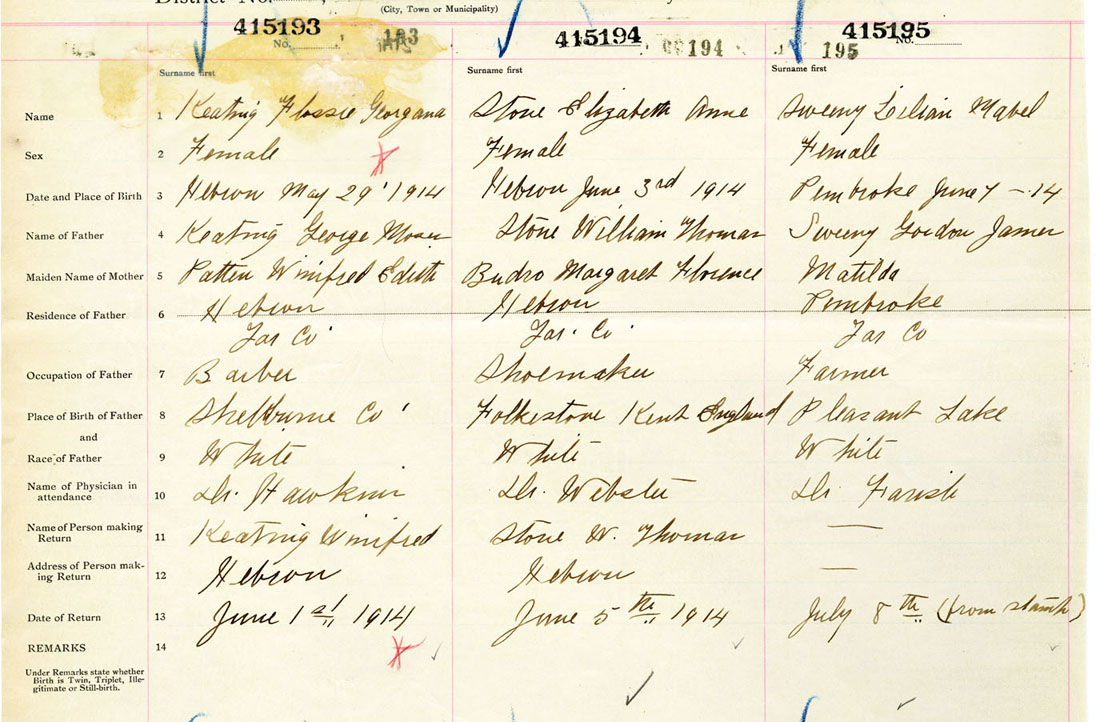 District No.
(City, Town or Municipality)
415193 415194 415195
No. 193 194 195 No.
Surname first Surname first Surname first
Name 1 Keating Flossie Georgana Stone Elizabeth Anne Sweeny Lilian Mabel
Sex 2 Female Female Female
Date and Place of Birth 3 Hebron May 29' 1914 Hebron June 3rd 1914 Pembroke June 7 - 14
Name of Father 4 Keating George Moser Stone William Thomas Sweeny Gordon James
Maiden Name of Mother 5 Patten Winifred Edith Budro Margaret Florence Matilda
Residence of Father 6 Hebron Hebron Pembroke
Yar Co Yar. Co Yar Co
Occupation of Father 7 Barber Shoemaker Farmer
Place of Birth of Father 8 Shelburne Co' Folkestone Kent England Pleasant Lake
and
Race of Father 9 White White White
Name of Physician in
attendance 10 Dr. Hawkins Dr. Webster Dr Farish
Name of Person making
Return 11 Keating Winifred Stone W. Thomas —
Address of Person mak-
ing Return 12 Hebron Hebron —
Date of Return 13 June 1st 1914 June 5th 1914 July 8th (from stamp)
REMARKS 14
Under Remarks state whether
Birth is Twin, Triplet, Ille-
gitimate or Still-birth.